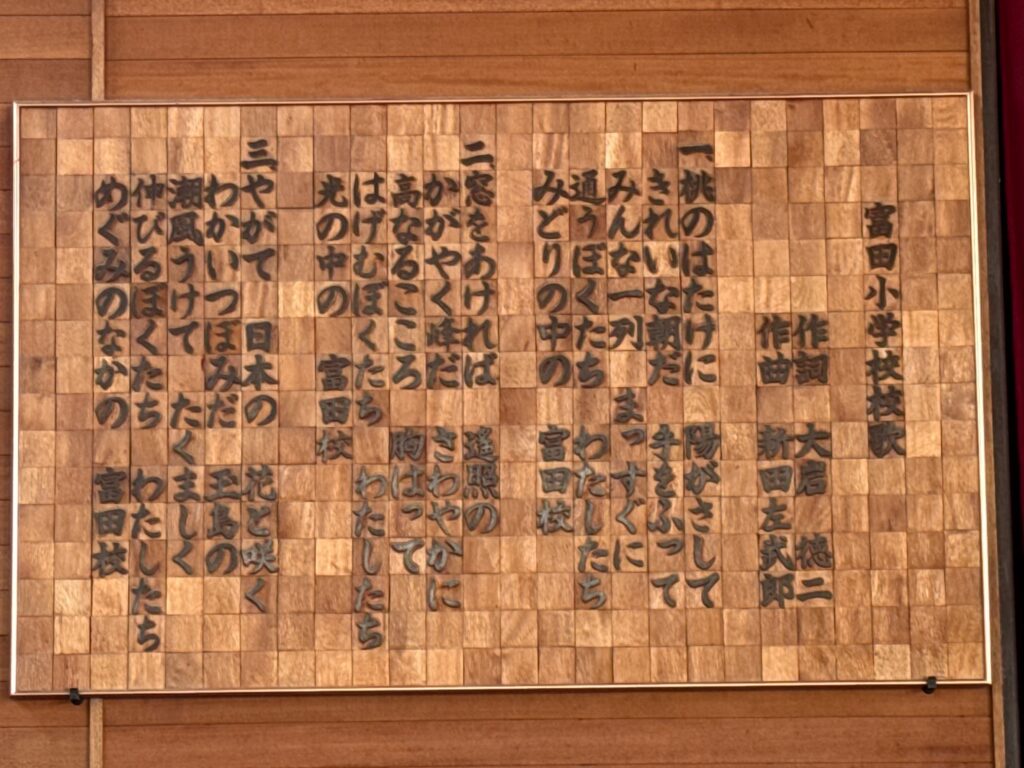 富田小学校校歌
作詞 大岩 徳二
作曲 新田左武郎
一 桃のはたけに 陽がさして
きれいな朝だ 手をふって
みんな一列 まっすぐに
通うぼくたち わたしたち
みどりの中の 富田校
二 窓をあければ 遙照の
かがやく峰だ さわやかに
高なるこころ 胸はって
はげむぼくたち わたしたち
光の中の 富田校
三 やがて 日本の 花と咲く
わかいつぼみだ 玉島の
潮風うけて たくましく
伸びるぼくたち わたしたち
めぐみのなかの 富田校